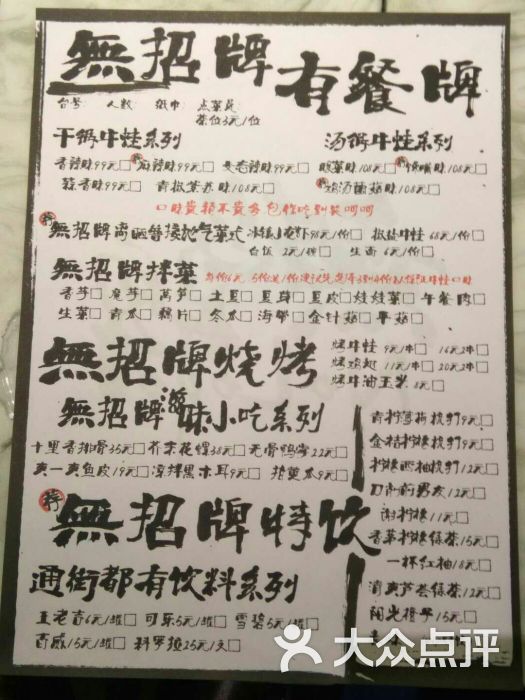 無招牌有餐牌
台号: 人数: 纸巾: 点菜员
茶位3元/位
干锅牛蛙系列
汤锅牛蛙系列
香辣味99元□ 麻辣味99元□ 99元□
酸菜味108元□ 108元□
蒜香味99元□ 青椒紫苏味108元□
鸡汤菌菇味108元□
無招牌
98元/份□ 椒盐牛蛙 68元/份□
白饭 2元/碗□ 生面 6元/份□
無招牌拌菜
香芋□ 魔芋□ 莴笋□ 土豆□ 豆苗□ 豆皮□ 娃娃菜□ 午餐肉□
生菜□ 青瓜□ 藕片□ 冬瓜□ 海带□ 金针菇□ 平菇□
無招牌烧烤
烤牛蛙 9元/串□ 16元2串□
烤鸡翅 11元/串□ 20元2串□
烤牛油玉米 8元□
無招牌滋味小吃系列
十里香排骨35元□ 芥末花螺38元□ 无骨鸭掌22元□
爽一爽鱼皮19元□ 凉拌黑木耳9元□ 拍黄瓜9元□
青柠薄荷梳打9元□
金桔柠檬梳打9元□
柠檬西柚梳打12元□
12元□
柠檬11元□
香茅柠檬绿茶15元□
一杯红柚18元□
清爽芦荟绿茶12元□
阳光橙子15元□
無招牌特饮
通街都有饮料系列
王老吉6元/罐□ 可乐5元/罐□ 雪碧5元/罐□
百威15元/罐□ 科罗拉25元/支□
大众点评